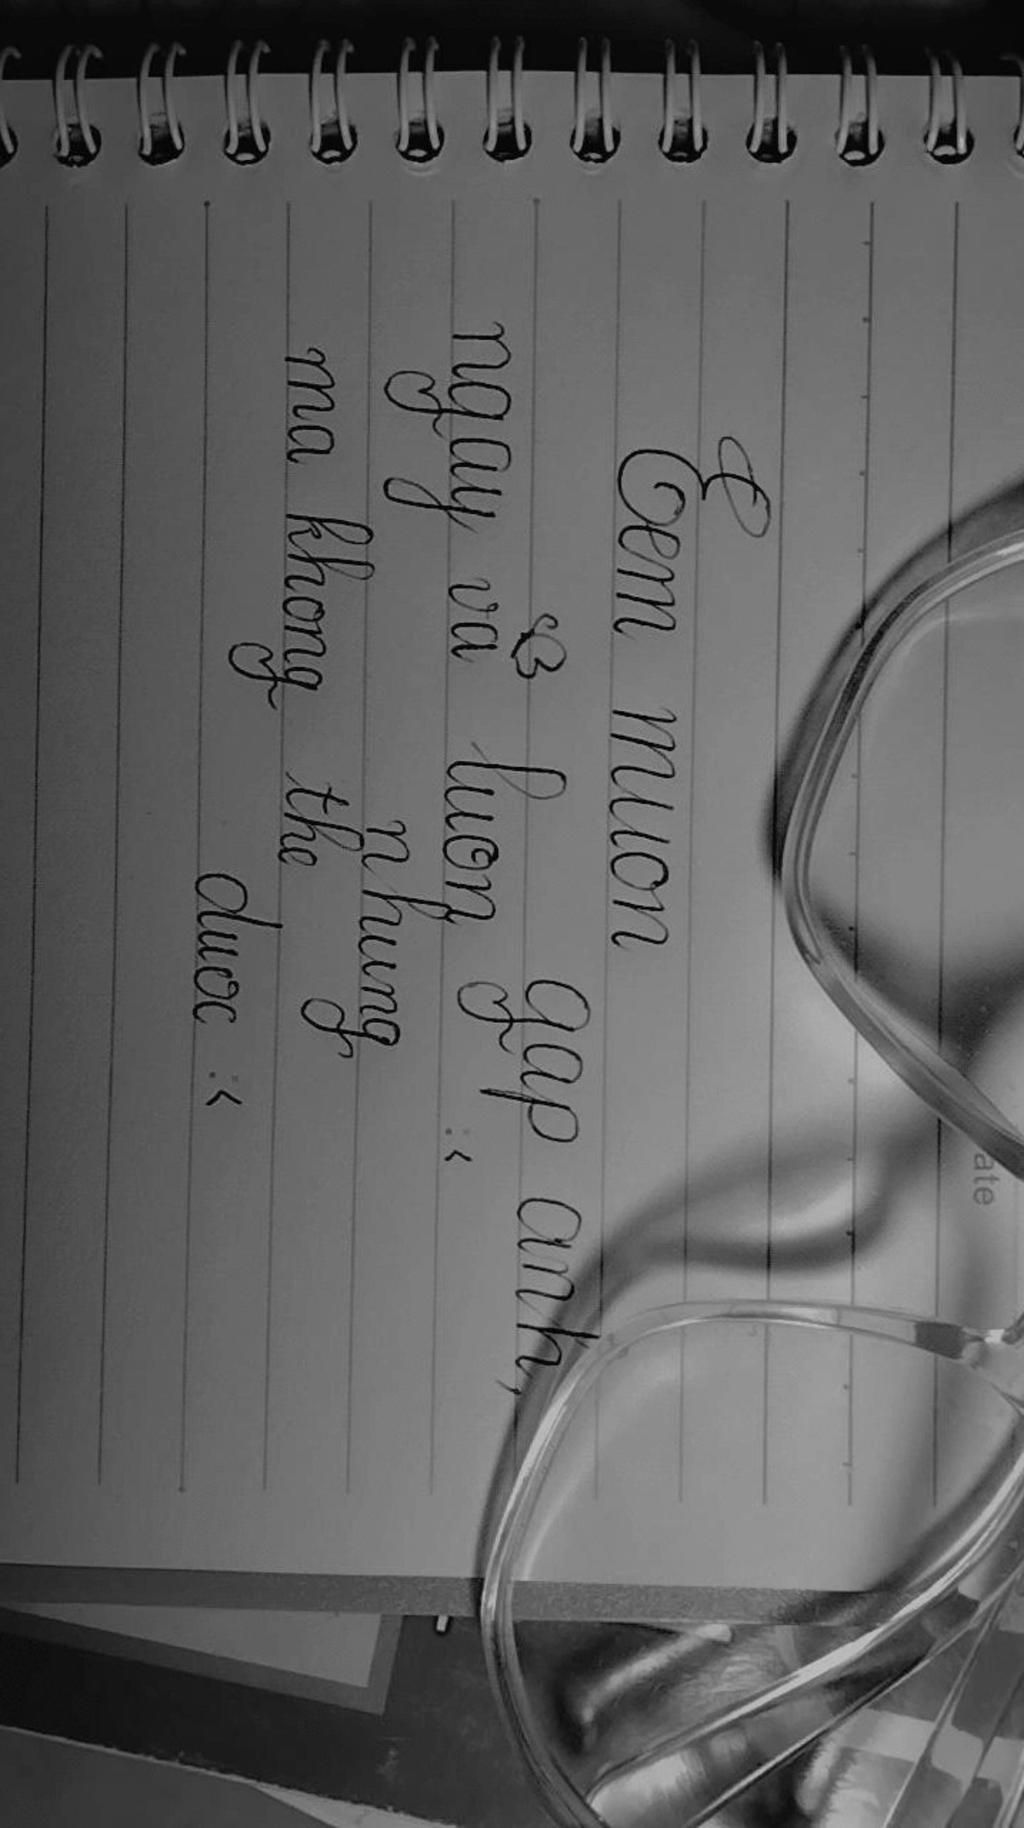 ate
Eem muon
gap anh,
ngay va luon :<
nhung
ma khong the
duoc :<